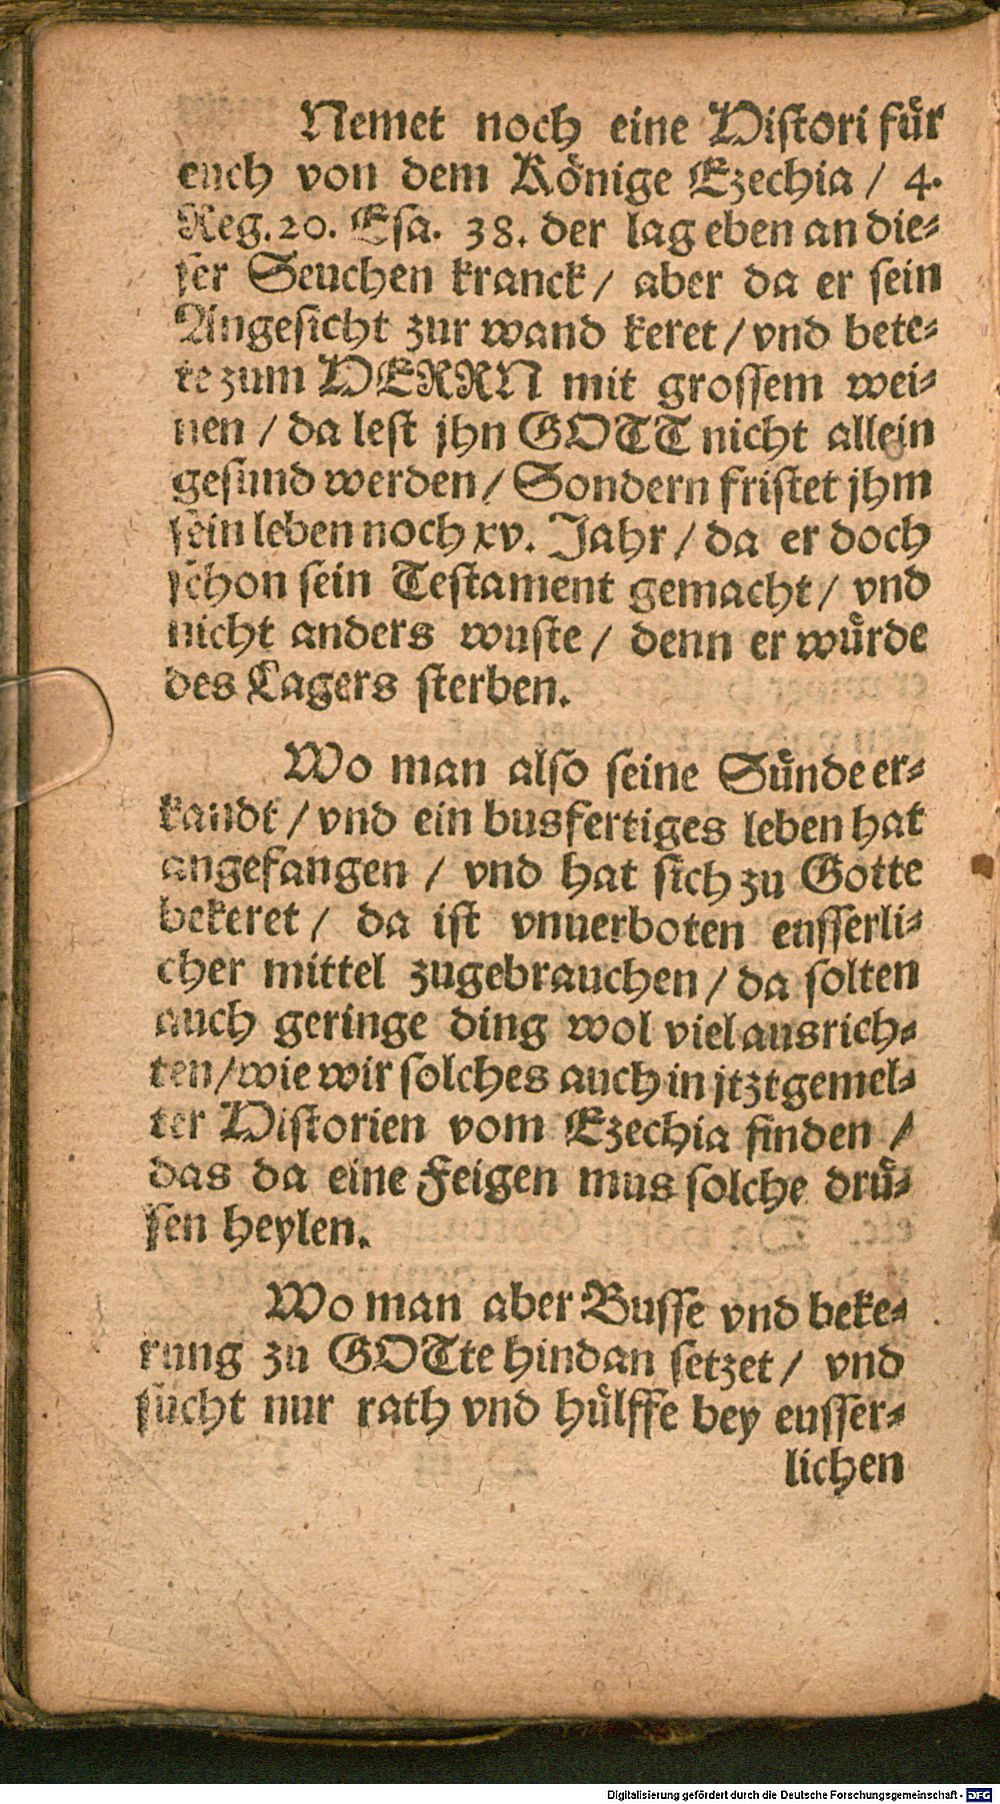 Nemet noch eine Histori für
euch von dem Könige Ezechia / 4.
Reg. 20. Esa. 38. der lag eben an die-
ser Seuchen kranck / aber da er sein
Angesicht zur wand keret / vnd bete-
te zum HERRN mit grossem wei-
nen / da lest jhn GOTT nicht allein
gesund werden / Sondern fristet jhm
sein leben noch xv. Jahr / da er doch
schon sein Testament gemacht / vnd
nicht anders wuste / denn er würde
des Lagers sterben.
Wo man also seine Sünde er-
kandt / vnd ein busfertiges leben hat
angefangen / vnd hat sich zu Gotte
bekeret / da ist vnuerboten eusserli-
cher mittel zugebrauchen / da solten
auch geringe ding wol viel ausrich-
ten / wie wir solches auch in jtztgemel-
ter Historien vom Ezechia finden /
das da eine Feigen mus solche drü-
sen heylen.
Wo man aber Busse vnd beke-
rung zu GOTte hindan setzet / vnd
sücht nur rath vnd hülffe bey eusser-
lichen
Digitalisierung gefördert durch die Deutsche Forschungsgemeinschaft - DFG